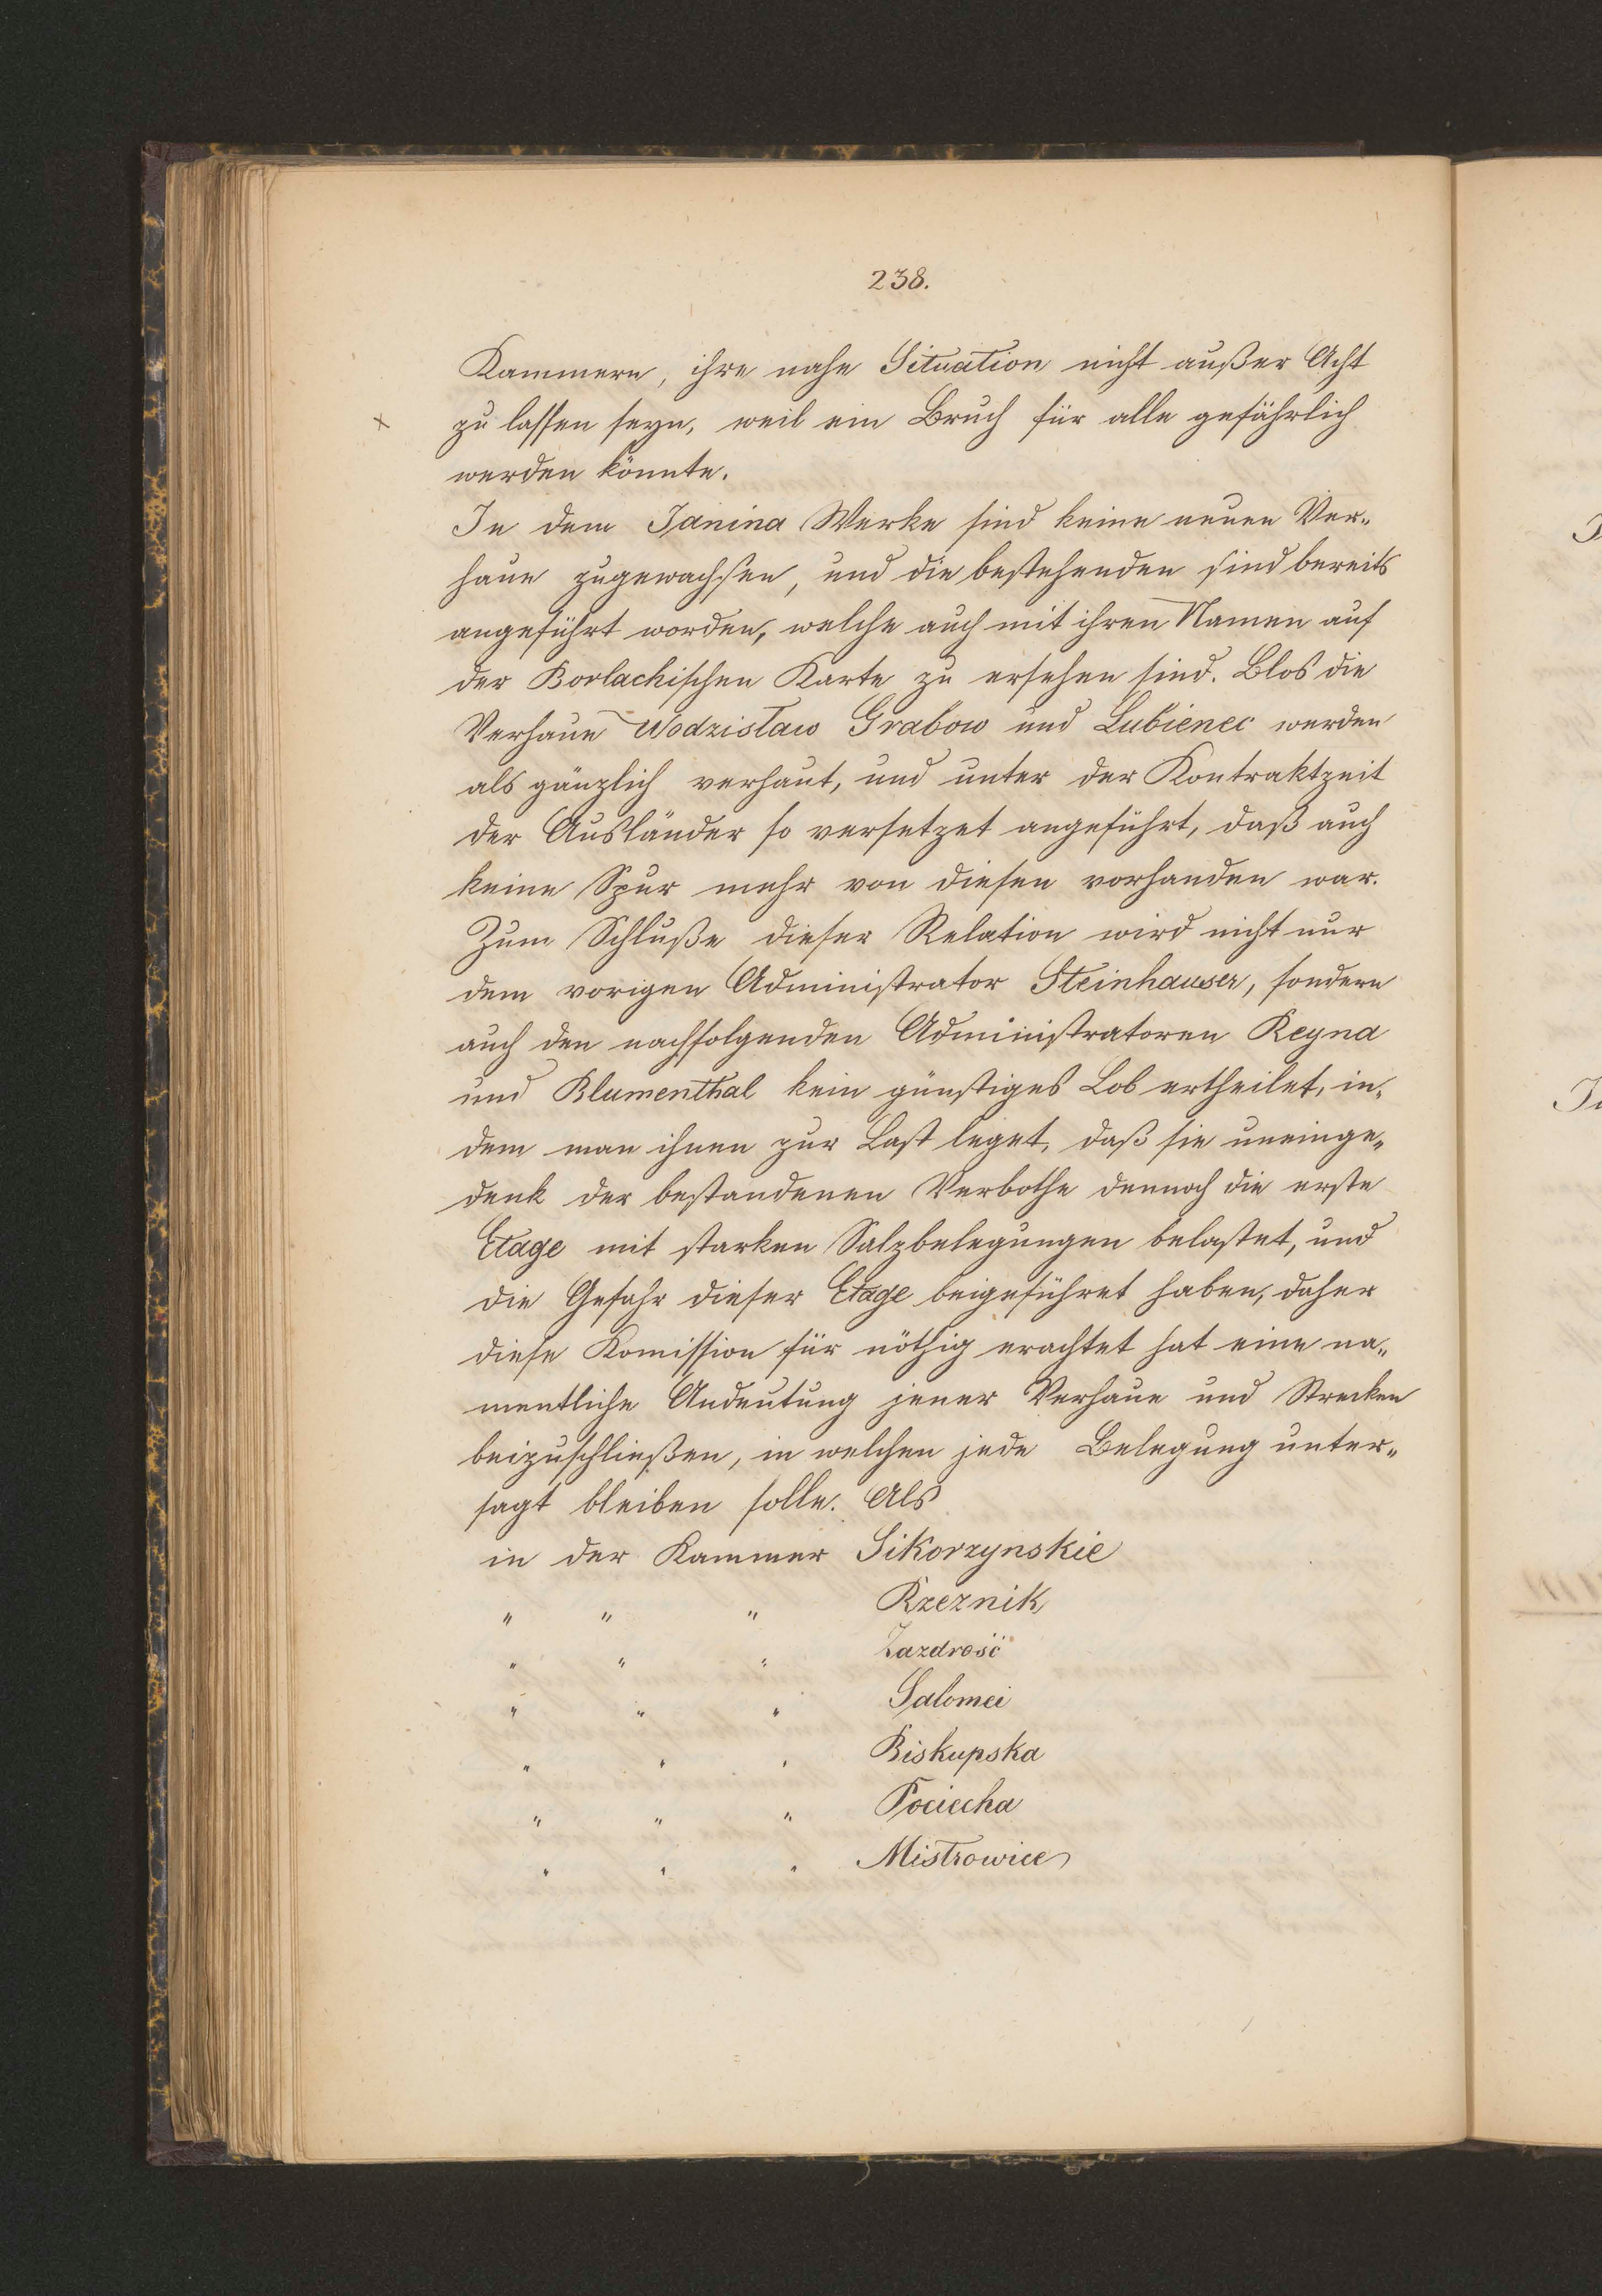 238.
Kammern, ihre nahe Situation nicht außer Acht
x zu lassen seyn, weil ein Bruch für alle gefährlich
werden könnte.
In dem Janina Werke sind keine neuen Ver-
haue zugewachsen, und die bestehenden sind bereits
angeführt worden, welche auch mit ihren Namen auf
der Borlachischen Karte zu ersehen sind. Blos die
Verhaue Wodzisław Grabow und Lubienec werden
als gänzlich verhaut, und unter der Kontraktzeit
der Ausländer so versetzet angeführt, daß auch
keine Spur mehr von diesen vorhanden war.
Zum Schluße dieser Relation wird nicht nur
dem vorigen Administrator Steinhauser, sondern
auch den nachfolgenden Administratoren Reyna
und Blumenthal kein günstiges Lob ertheilet, in-
dem man ihnen zur Last leget, daß sie uneinge-
denk der bestandenen Verbothe dennoch die erste
Etage mit starken Salzbelegungen belastet, und
die Gefahr dieser Etage beigeführet haben, daher
diese Komission für nöthig erachtet hat eine na-
mentliche Andeutung jener Verhaue und Strecken
beizuschließen, in welchen jede Belegung unter-
sagt bleiben solle. Als
in der Kammer Sikorzynskie
" " " Rzeznik
" " " Zazdrość
" " " Salomei
" " " Biskupska
" " " Pociecha
" " " Mistrowice